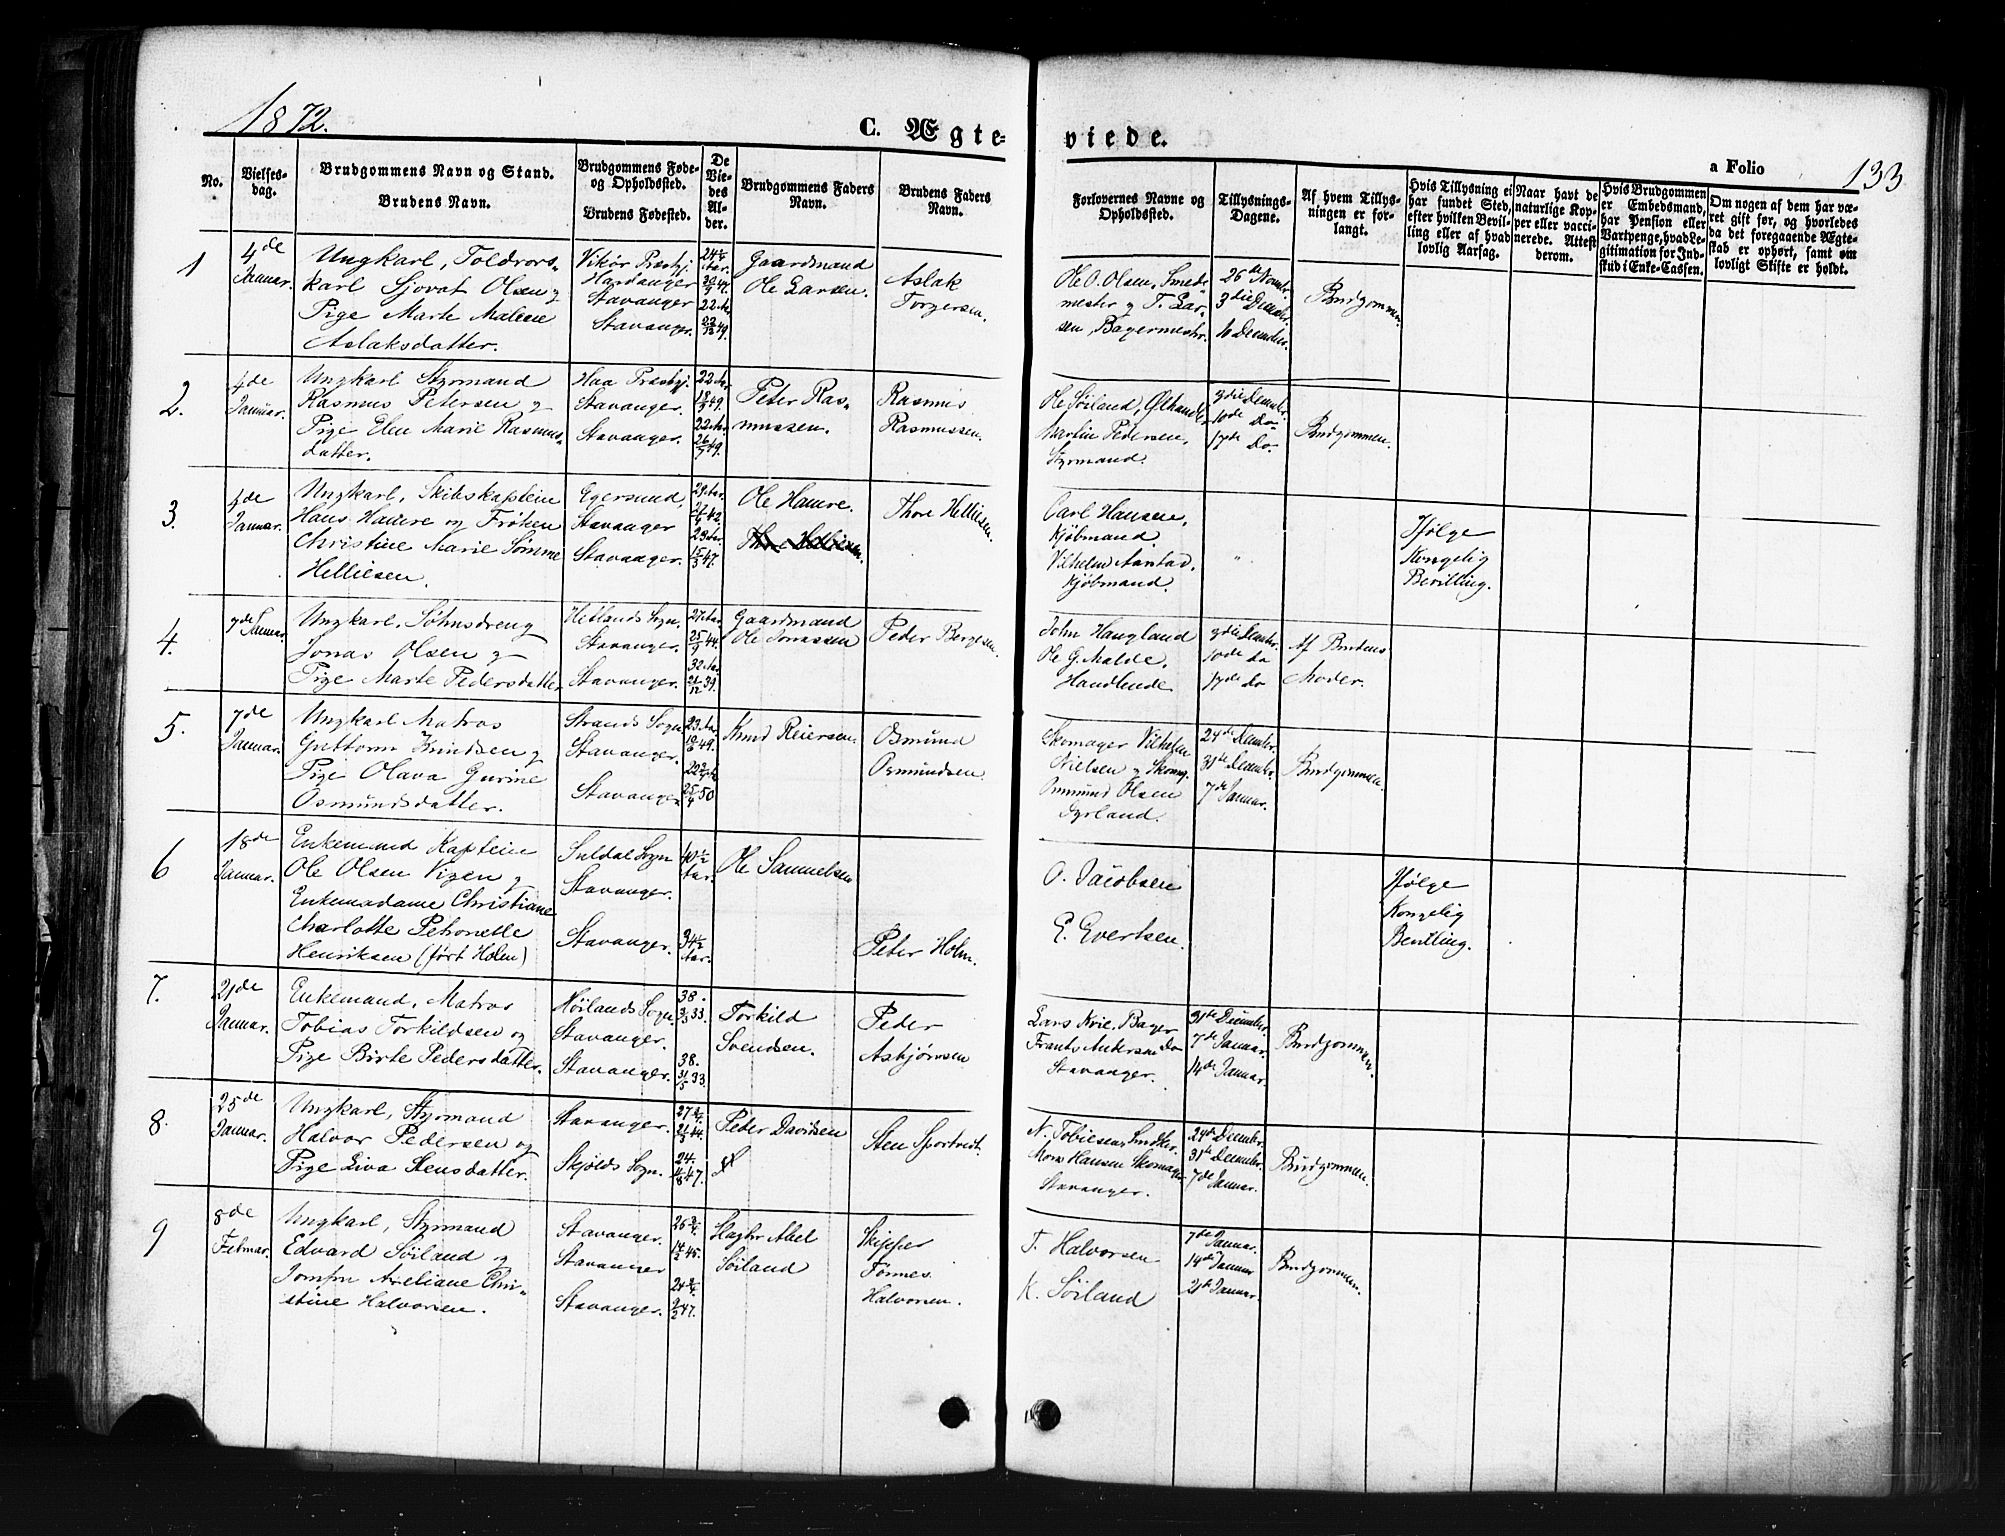 1872.
C. Ægte-
viede.
a Folio
133
No.
Vielses-
dag.
Brudgommens Navn og Stand.
Brudens Navn.
Brudgommens Føde-
og Opholdssted.
Brudens Fødested.
De
Vie-
des
Al-
der.
Brudgommens Faders
Navn.
Brudens Faders
Navn.
Forlovernes Navne og
Opholdssted.
Tillysnings-
Dagene.
Af hvem Tillys-
ningen er for-
langt.
Hvis Tillysning ei
har fundet Sted,
efter hvilken Bevil-
ling eller af hvad
lovlig Aarsag.
Naar havt de
naturlige Kop-
per eller vacci-
nerede. Attest
derom.
Hvis Brudgommen
er Embedsmand,
har Pension eller
Vartpenge, hvad Le-
gitimation for Ind-
skud i Enke-Cassen.
Om nogen af dem har væ-
ret gift før, og hvorledes
da det foregaaende Ægte-
skab er ophørt, samt om
lovligt Skifte er holdt.
1
4de
Januar.
Ungkarl, Toldrors-
karl Sjovat Olsen og
Pige Marte Malene
Aslaksdatter.
Vikør Præstgj.
Hardanger
Stavanger
Stavanger.
Gaardmand
Ole Larsen.
Aslak
Torgersen.
Ole O. Olsen, Smede-
mester og T. Lar-
sen, Bagermestr.
26de Novbr.
3die Decembr.
10 Decembr.
Brudgommen.
2.
4de
Januar.
Ungkarl Styrmand
Rasmus Petersen og
Pige Elen Marie Rasmus-
datter.
Haa Præstgj.
Stavanger.
Stavanger.
22 Aar
18/9 49.
22 Aar
26/7 49.
Peter Ras-
mussen.
Rasmus
Rasmussen.
Ole Søiland, Ølhandler
Martin Pedersen,
Styrmand.
3die Decembr.
10de Do
17de Do.
Brudgommen.
3.
4de
Januar.
Ungkarl, Skibskaptein
Hans Hauere og Frøken
Christine Marie Sømme
Helliesen.
Egersund,
Stavanger
Stavanger.
Ole Hauere.
Thore Helliesen
Thore Helliesen.
Carl Hansen,
Kjøbmand.
Vilhelm Aanstad,
Kjøbmand.
"
Ifølge
Kongelig
Bevilling.
4.
7de Januar.
Ungkarl, Søhnsdreng
Jonas Olsen og
Pige Marte Pedersdatter
Hetlands Sogn.
Stavanger.
Stavanger.
27 Aar
25/9 44.
32 Aar
21/12 39.
Gaardmand
Ole Jonassen
Peder Bergesen.
John Haugland
Ole G. Malde.
Handlende
3die Decembr.
10de do
17de do
Af Brudens
Moder.
5.
7de
Januar.
Ungkarl Matros
Guttorm Knudsen og
Pige Olava Gurine
Osmundsdatter.
Strands Sogn
Stavanger.
Stavanger.
Knud Reiersen.
Osmund
Osmundsen.
Skomager Vilhelm
Nielsen og Skomg.
Osmund Olsen
24de Decembr.
31te Decembr.
7de Januar.
Brudgommen.
6
18de
Januar.
Enkemand Kaptein
Ole Olsen Vigen og
Enkemadame Christiane
Charlotte Petronelle
Henriksen (født Holm)
Suldal Sogn
Stavanger.
Stavanger.
40 1/2
Aar.
34 1/2
Aar.
Ole Samuelsen
Peter Holm.
O. Jacobsen
E. Evertsen.
Ifølge
Kongelig
Bevilling.
7.
21de
Januar.
Enkemand, Matros
Tobias Torkildsen og
Pige Birte Pedersdatter.
Høilands Sogn.
Stavanger.
Stavanger.
38.
3/3 33.
38.
31/5 33.
Torkild
Svendsen.
Peder
Asbjørnsen
Lars Kvie, Bager
Frants Andersen do
Stavanger.
31te Decembr.
7de Januar.
14de Januar.
Brudgommen.
8.
25de
Januar.
Ungkarl, Styrmand
Halvor Pedersen og
Pige Liva Stensdatter.
Stavanger.
Skjolds Sogn.
Peter Davidsen
Sten
N. Tobiesen, Snedker.
Mons Hansen Skomager
Stavanger.
24de Decembr.
31te Decembr.
7de Januar.
Brudgommen.
9
8de
Februar.
Ungkarl, Styrmand
Edvard Søiland og
Jomfru Aseliane Chri-
stine Halvorsen.
Stavanger.
Stavanger
Stavanger.
Abel
Søiland
Skipper
Tønnes
Halvorsen.
T. Halvorsen
K. Søiland
7de Januar.
14de Januar
21de Januar.
Brudgommen.